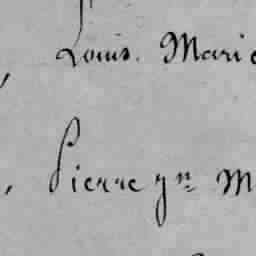 , Louis. Marie
, Pierre yn M